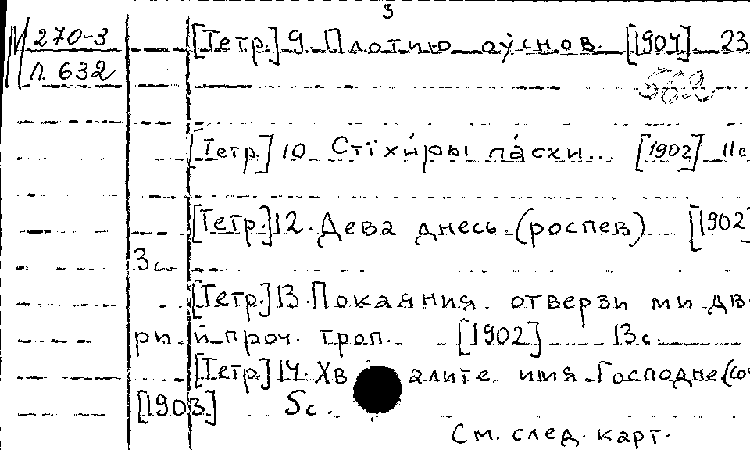 3
270-3 [Тетр.] 9. Плотию оуснов. [1904] 23
П. 632
[Тетр.] 10 Стїхи́ры па́схи... [1902] 11с
[Тетр.] 12. Дева днесь (роспев) [1902]
3с.
[Тетр.] 13. Покаяния отверзи ми дв
ри й проч. троп. [1902] 13с.
[Тетр.] 14. Хвалите имя Господне (со
[1903.] 5с.
См. след. карт.